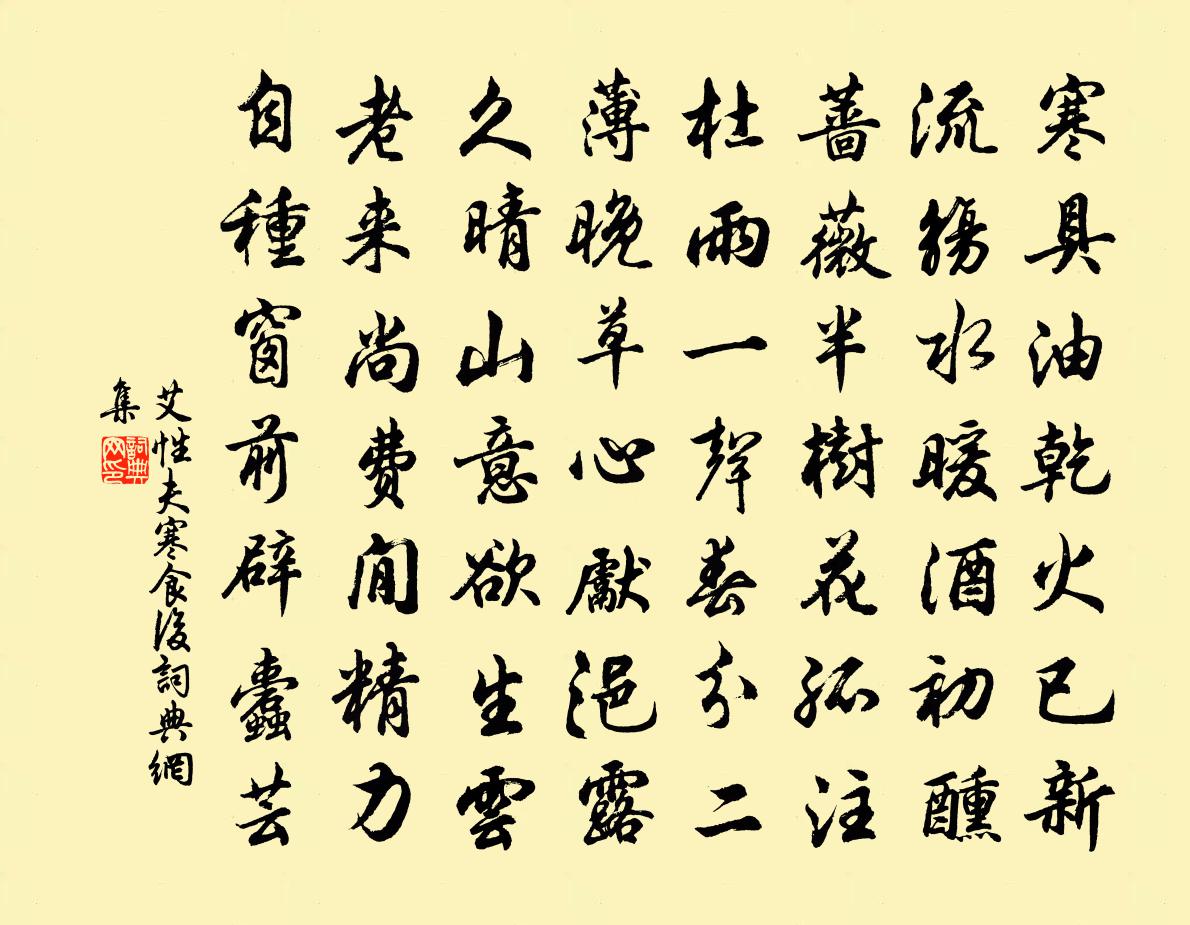 寒具油乾火已新
流觴水暖酒初醺
薔薇半樹花孤注
杜雨一聲春分二
薄晚草心獻浥露
久晴山意欲生雲
老来尚費閒精力
自種窗前辟蠹芸
艾性夫寒食後詞典網
集
詞典網印